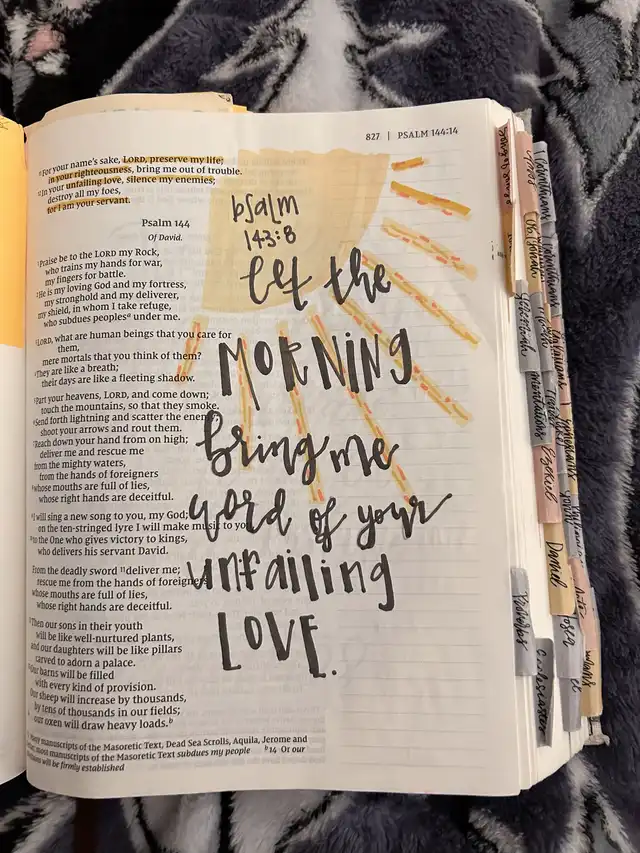 827 | PSALM 144:14
11 For your name's sake, LORD, preserve my life;
in your righteousness, bring me out of trouble.
12 In your unfailing love, silence my enemies;
destroy all my foes,
for I am your servant.
Psalm 144
Of David.
1 Praise be to the LORD my Rock,
who trains my hands for war,
my fingers for battle.
2 He is my loving God and my fortress,
my stronghold and my deliverer,
my shield, in whom I take refuge,
who subdues peoples a under me.
3 LORD, what are human beings that you care for
them,
mere mortals that you think of them?
4 They are like a breath;
their days are like a fleeting shadow.
5 Part your heavens, LORD, and come down;
touch the mountains, so that they smoke.
6 Send forth lightning and scatter the enemy;
shoot your arrows and rout them.
7 Reach down your hand from on high;
deliver me and rescue me
from the mighty waters,
from the hands of foreigners
8 whose mouths are full of lies,
whose right hands are deceitful.
9 I will sing a new song to you, my God;
on the ten-stringed lyre I will make music to you,
10 to the One who gives victory to kings,
who delivers his servant David.
From the deadly sword 11 deliver me;
rescue me from the hands of foreigners
whose mouths are full of lies,
whose right hands are deceitful.
12 Then our sons in their youth
will be like well-nurtured plants,
and our daughters will be like pillars
carved to adorn a palace.
13 Our barns will be filled
with every kind of provision.
Our sheep will increase by thousands,
by tens of thousands in our fields;
our oxen will draw heavy loads. b
manuscripts of the Masoretic Text, Dead Sea Scrolls, Aquila, Jerome and
most manuscripts of the Masoretic Text subdues my people b 14 Or our
will be firmly established
psalm
143:8
let the
MORNING
bring me
word of your
unfailing
LOVE.
Jeremiah
Lamentations
Ezekiel
Daniel
Hosea
Proverbs
Ecclesiastes